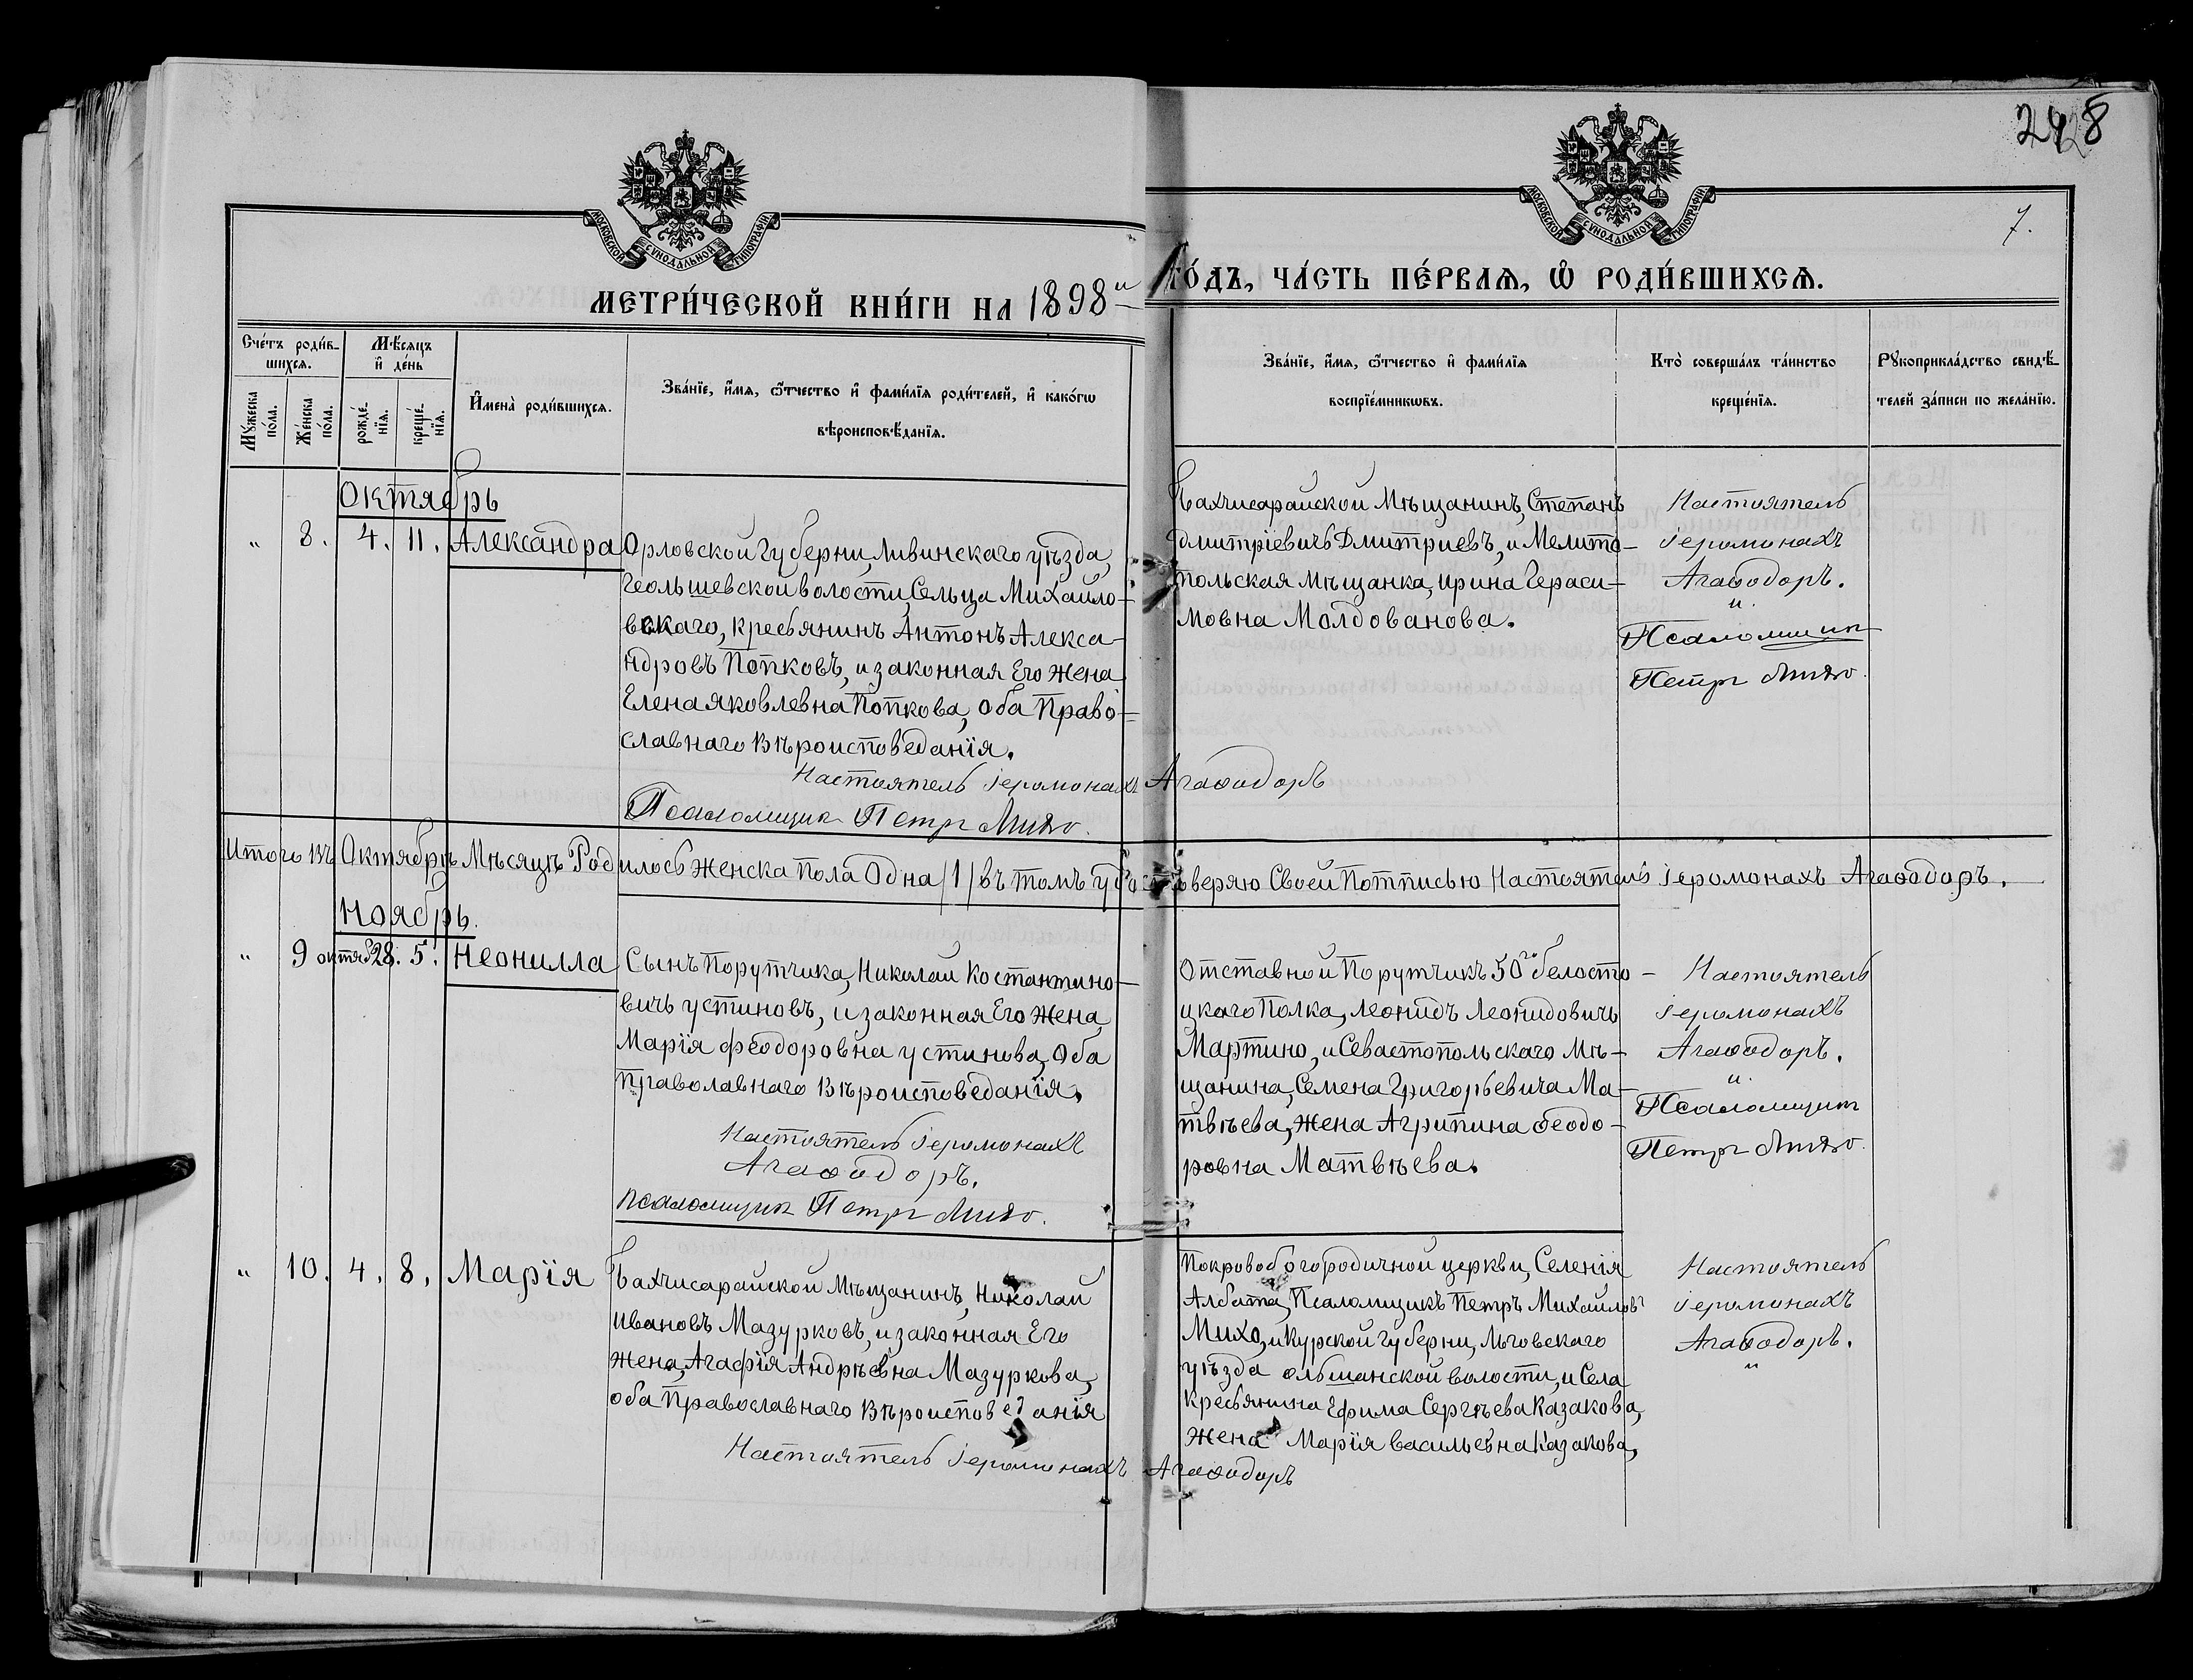 248
7.
МОСКОВСКОЙ СѴНОДАЛЬНОЙ ТИПОГРАФІИ
МОСКОВСКОЙ СѴНОДАЛЬНОЙ ТИПОГРАФІИ
МЕТРИ́ЧЕСКОЙ КНИ́ГИ НА 1898й ГО́ДЪ, ЧА́СТЬ ПЕ́РВАѦ, Ѡ҆ РОДИ́ВШИХСѦ.
Сче́тъ роди́в-
шихсѧ.
Мѣ́сѧцъ
и҆ де́нь
Мꙋ́жеска
по́ла.
Же́нска
по́ла.
рожде́-
нїѧ.
креще́-
нїѧ.
И҆мена̀ роди́вшихсѧ.
Зва́нїе, и҆́мѧ, ѻ҆́тчество и҆ фами́лїѧ роди́телей, и҆ како́гѡ
вѣроисповѣ́данїѧ.
Зва́нїе, и҆́мѧ, ѻ҆́тчество и҆ фами́лїѧ
воспрїе́мникѡвъ.
Кто̀ соверша́лъ та́инство
креще́нїѧ.
Рꙋкоприкла́дство свидѣ́-
телей за́писи по жела́нїю.
Октябрь
" 8. 4. 11. Александра
Орловской Губерни, Ливинскаго уѣзда,
волости, Сельца Михайло-
вскаго, кресьянинъ Антонъ Алекса-
ндровъ Попковъ, и законная Его Жена
Елена Яковлевна Попкова, Оба Право-
славнаго Вѣроисповеданїя.
Настоятель іеромонахъ Агаѳодоръ
Псаломщик Петръ Михо.
Бахчисарайской Мѣщанинъ, Степанъ
Дмитріевичъ Дмитриевъ, и Мелито-
польская мѣщанка, Ирина Гераси-
мовна Молдованова.
Настоятель
іеромонахъ
Агаѳодоръ.
и.
Псаломщик
Петръ Михо.
Итого въ Октябрѣ Мѣсяцѣ Родилось Женска пола Одна /1/ въ томъ удостоверяю Своей Потписью Настоятель іеромонахъ Агаѳодоръ.
Ноябрь.
" 9 октяб 28. 5. Неонилла
Сынъ Порутчика, Николай Костантино-
вичь Устиновъ, и законная Его Жена,
Марїя Феодоровна Устинова, Оба
Праволавнаго Вѣроисповеданїя.
Настоятель іеромонахъ
Агаѳодоръ.
псаломщик Петръ Михо.
Отставной Порутчикъ 50го белосто-
цкаго Полка, Леонидъ Леонидовичъ
Мартино, и Севастопольскаго Мѣ-
щанина, Семена Григорьевича Ма-
твѣева, Жена Агрипина Ѳеодо-
ровна Матвѣева.
Настоятель
іеромонахъ
Агаѳодоръ.
и.
Псаломщик
Петръ Михо.
" 10. 4. 8. Марїя
Бахчисарайской Мѣщанинъ, Николай
Ивановъ Мазурковъ, и законная Его
Жена, Агафїя Андрѣевна Мазуркова,
оба Православнаго Вѣроисповеданїя
Настоятель іеромонахъ Агаѳодоръ
Покровобогородичной церкви, Селенїя
Албата, Псаломщикъ Петръ Михайловъ
Михо, и Курской Губерни, Льговскаго
уѣзда Ольшанской волости, и Села
Кресьянина Ефима Сергѣева Казакова,
Жена Марїя Васильевна Казакова,
Настоятель
іеромонахъ
Агаѳодоръ.
"